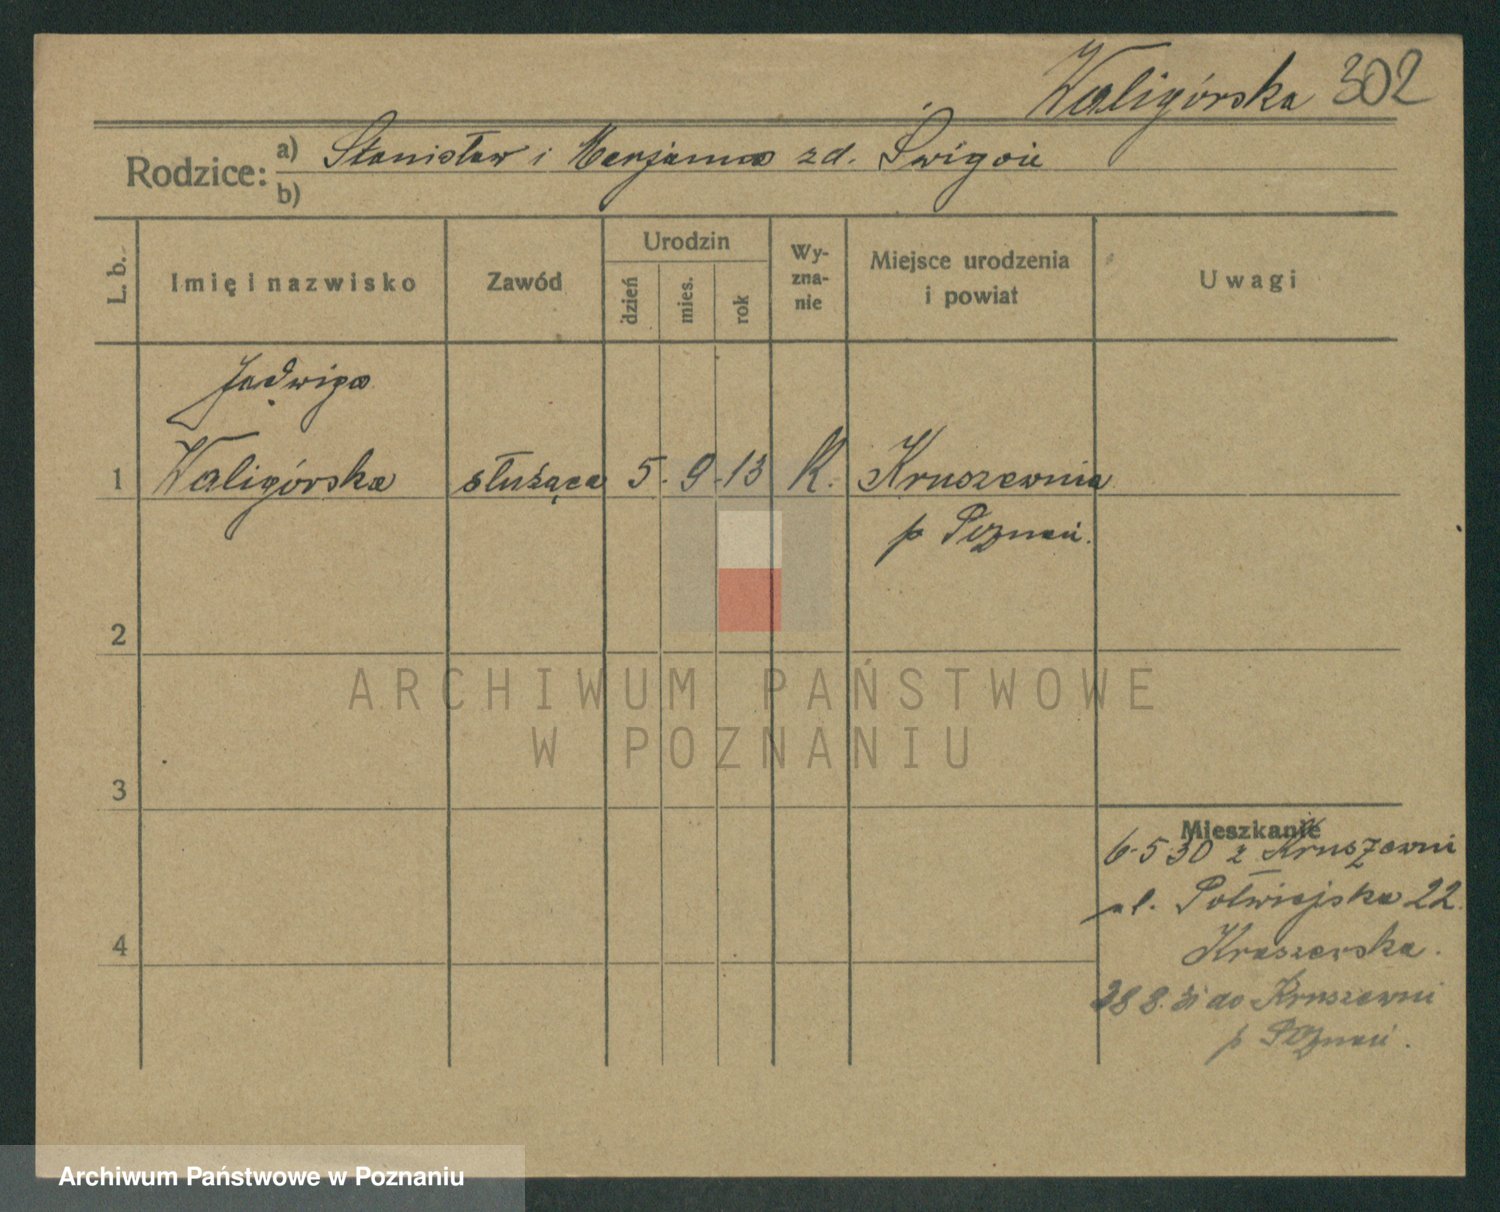 Waligórska 302
Rodzice: a) Stanisław i Marjanna zd. Świgoń
b)
L. b.
Imię i nazwisko
Zawód
Urodzin
dzień
mies.
rok
Wy-
zna-
nie
Miejsce urodzenia
i powiat
Uwagi
Jadwiga
1 Waligórska służąca 5. 9. 13 K. Kruszewnia
p Poznań.
2
ARCHIWUM PAŃSTWOWE
W POZNANIU
3
Mieszkanie
6.5 30 z Kruszewni
ul. Półwiejska 22.
Kraszewska.
28 8. 31 do Kruszewni
p Poznań.
4
Archiwum Państwowe w Poznaniu